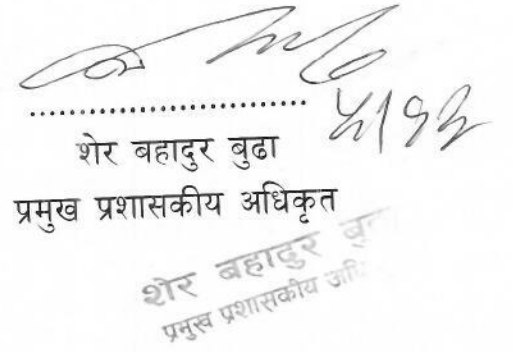 ..............................
५/१३
शेर बहादुर बुढा
प्रमुख प्रशासकीय अधिकृत
शेर बहादुर
प्रमुख प्रशासकीय